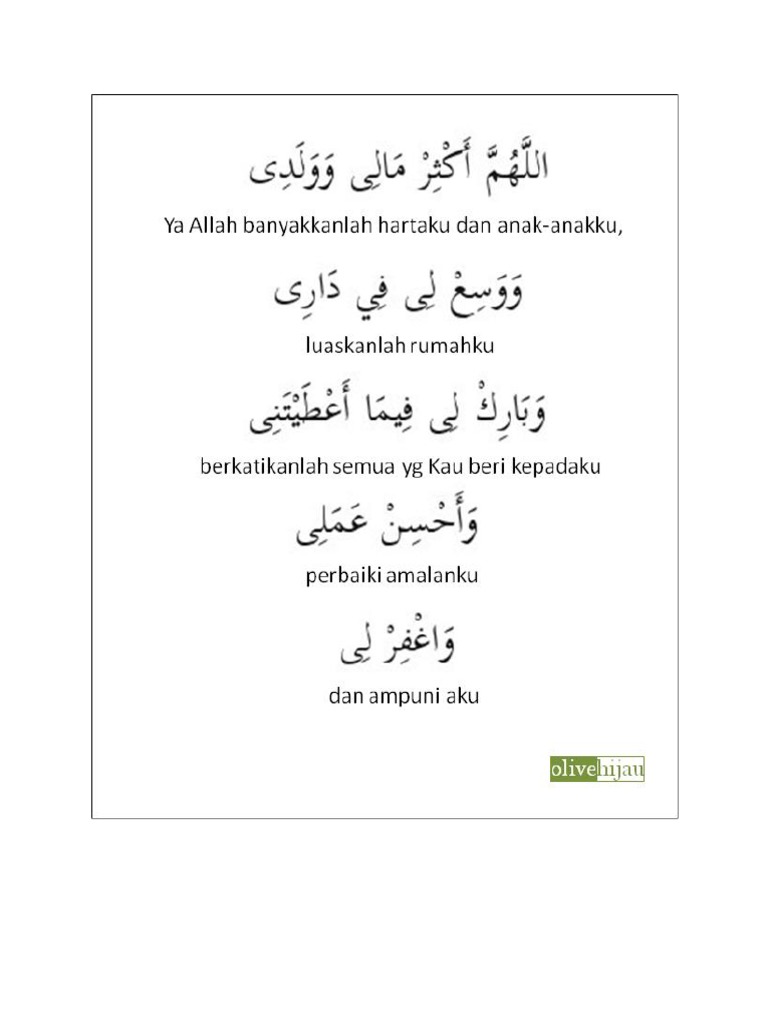 اللَّهُمَّ أَكْثِرْ مَالِى وَوَلَدِى
Ya Allah banyakkanlah hartaku dan anak-anakku,
وَوَسِعْ لِى فِي دَارِى
luaskanlah rumahku
وَبَارِكْ لِى فِيمَا أَعْطَيْتَنِى
berkatikanlah semua yg Kau beri kepadaku
وَأَحْسِنْ عَمَلِى
perbaiki amalanku
وَاغْفِرْ لِى
dan ampuni aku
olivehijau